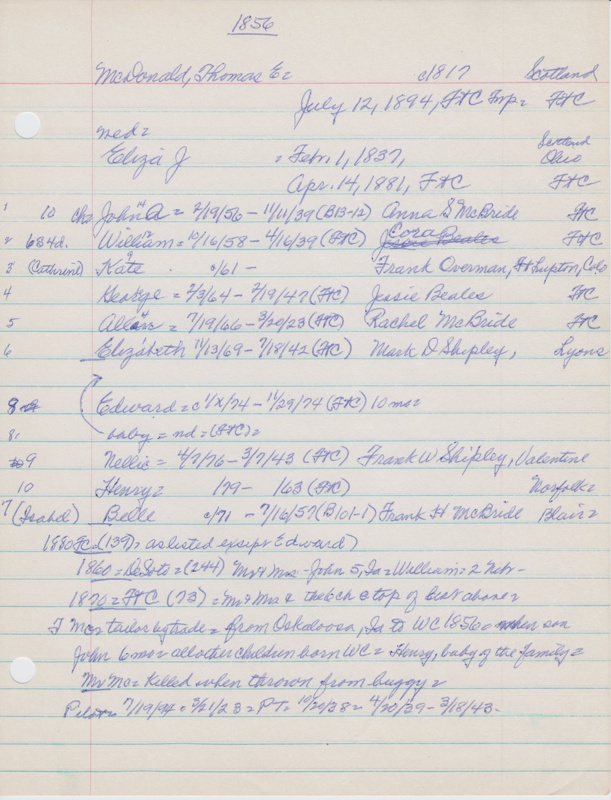 1856
McDonald, Thomas E= c1817 Scotland
July 12, 1894, FtC Imp= FtC
med= Scotland
Eliza J = Feb. 1, 1837, Ohio
Apr. 14, 1881, FtC FtC
1 10 ch= John A = 2/19/56 - 11/11/39 (B13-12) Anna S McBride FC
2 684d. William = 10/16/58 - 4/16/39 (FtC) Cora Jessie Beales FtC
3 (Cathrine) Kate c/61 - Frank Overman, Ft Lupton, Colo
4 George = 2/3/64 - 2/19/47 (FtC) Jessie Beales FC
5 Allen = 7/19/66 - 3/20/23 (FtC) Rachel McBride FC
6 Elizabeth 11/13/69 - 7/18/42 (FtC) Mark D Shipley, Lyons
8 Edward = c 1/x/74 - 11/29/74 (FtC) 10 mo=
8, baby = nd = (FtC) =
9 Nellie = 4/7/76 - 3/7/43 (FtC) Frank W Shipley, Valentine
10 Henry = 179 - 163 (FtC) Norfolk=
7 (Isabel) Belle c/71 - 7/16/57 (B101-1) Frank H McBride Blair=
1880 FC (139) = as listed except Edward)
1860 = DeSoto = (244) Mr & Mrs - John 5, Ia = William = 2 Neb -
1870 = FtC (73) = Mr & Mrs & the 6 ch @ top of list above =
Mc = tailor by trade = from Oskaloosa, Ia to WC 1856 when son
John 6 mo = all other children born WC = Henry, baby of the family =
Mr Mc = killed when thrown from buggy =
Pilot = 7/19/94 = 3/21/23 = PT = 10/20/38 = 4/20/39 - 3/18/43 -